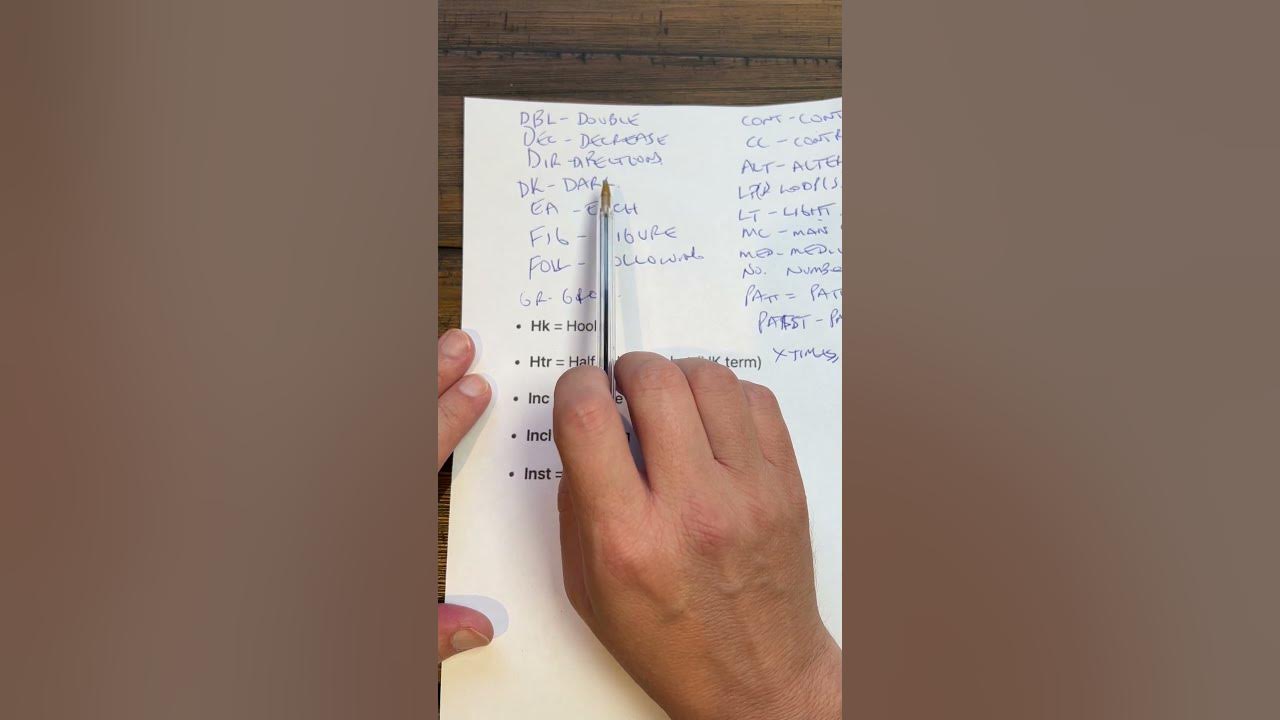 DBL - DOUBLE
DEC - DECREASE
DIR - DIRECTIONS
DK - DARK
EA - E CH
FIG - IGURE
FOLL - OLLOWING
GR - GRO
• Hk = Hool
• Htr = Half UK term)
• Inc e
• Incl
• Inst =
CONT - CONT
CC - CONTR
ALT - ALTER
LP(S) LOOP(S)
LT - LIGHT
MC - MAIN
MED - MEDIU
NO. NUMBE
PATT = PATT
- PA
X TIMES